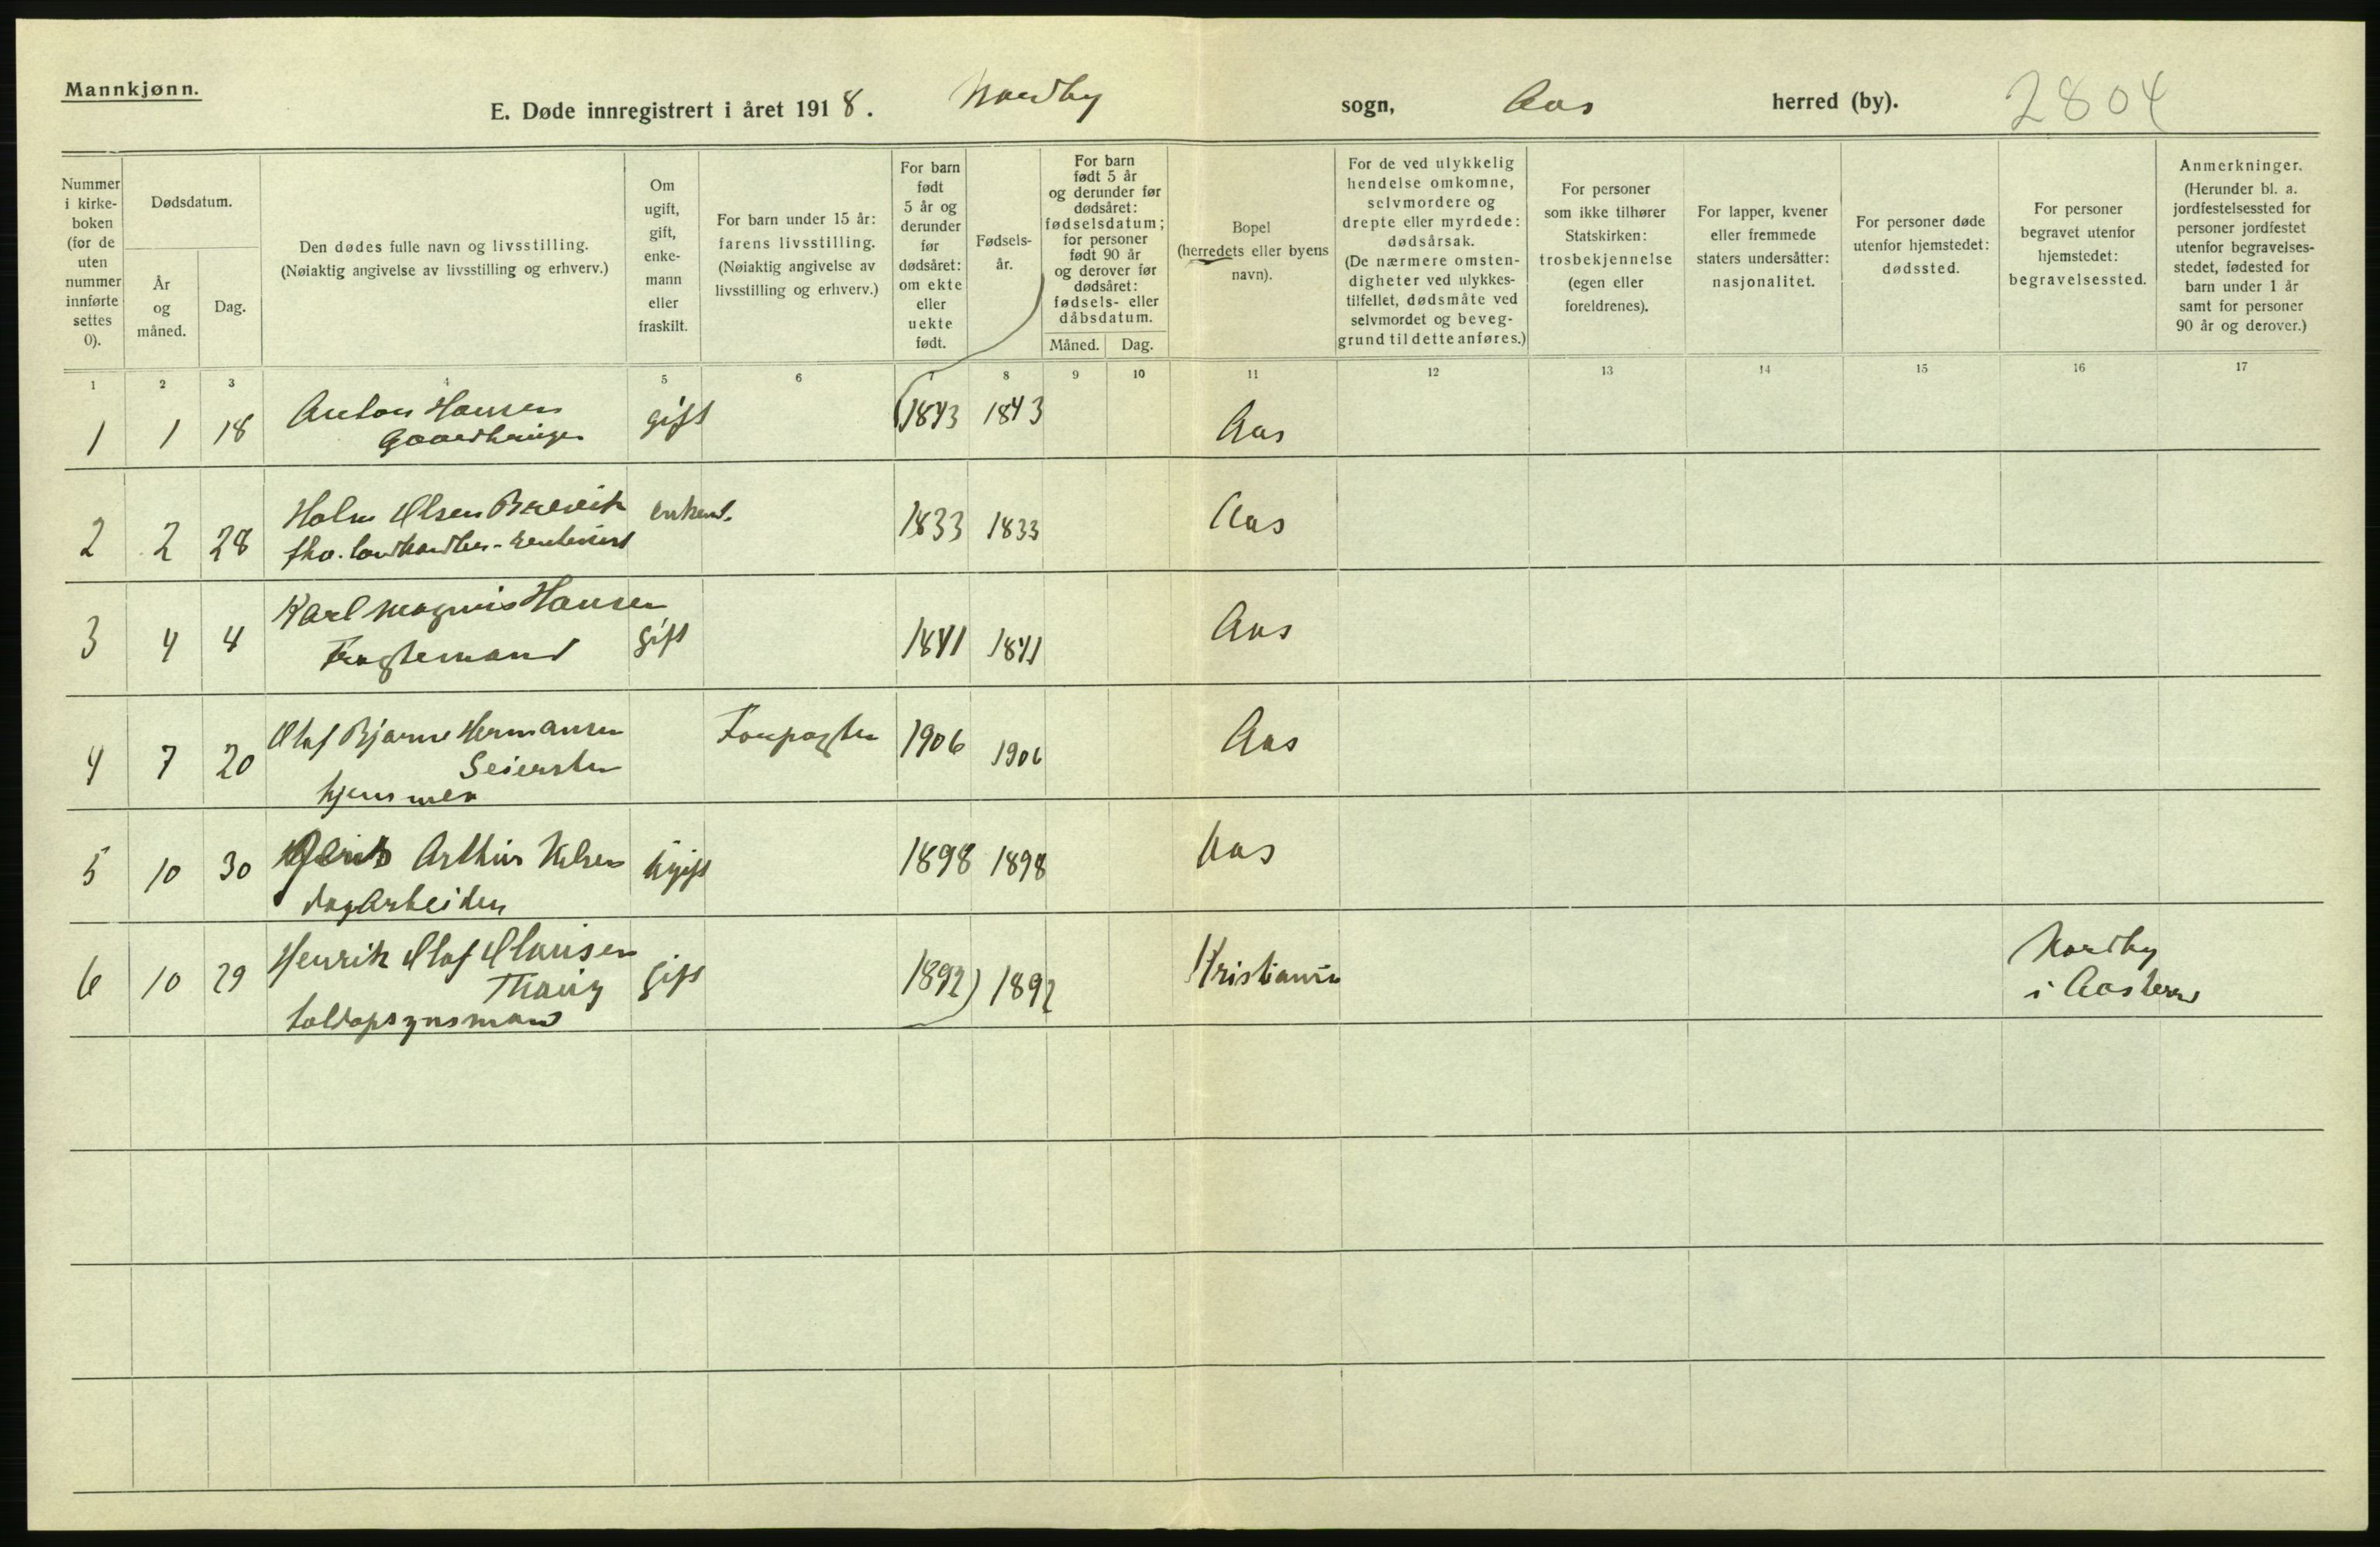 Mannkjønn.
E. Døde innregistrert i året 1918. Nordby sogn, Aas herred (by). 2804
Nummer i kirke-boken (for de uten nummer innførte settes 0).
Dødsdatum.
År og måned.
Dag.
Den dødes fulle navn og livsstilling.
(Nøiaktig angivelse av livsstilling og erhverv.)
Om ugift, gift, enke-mann eller fraskilt.
For barn under 15 år: farens livsstilling.
(Nøiaktig angivelse av livsstilling og erhverv.)
For barn født 5 år og derunder før dødsåret: om ekte eller uekte født.
Fødsels-år.
For barn født 5 år og derunder før dødsåret: fødselsdatum; for personer født 90 år og derover før dødsåret: fødsels- eller dåbsdatum.
Måned. Dag.
Bopel
(herredets eller byens navn).
For de ved ulykkelig hendelse omkomne, selvmordere og drepte eller myrdede: dødsårsak.
(De nærmere omsten-digheter ved ulykkes-tilfellet, dødsmåte ved selvmordet og beveg-grund til dette anføres.)
For personer som ikke tilhører Statskirken: trosbekjennelse (egen eller foreldrenes).
For lapper, kvener eller fremmede staters undersåtter: nasjonalitet.
For personer døde utenfor hjemstedet: dødssted.
For personer begravet utenfor hjemstedet: begravelsessted.
Anmerkninger.
(Herunder bl. a. jordfestelsessted for personer jordfestet utenfor begravelses-stedet, fødested for barn under 1 år samt for personer 90 år og derover.)
1 2 3 4 5 6 7 8 9 10 11 12 13 14 15 16 17
1 1 18 Anton Hansen gift 1843 1843 Aas
2 2 28 Holm Olsen Brevik enkem. 1833 1833 Aas
fho. landhandler - rentenist
3 4 4 Karl Magnus Hansen gift 1841 1841 Aas
Fragtemand
4 7 20 Olaf Bjarne Hermansen Forpagter 1906 1906 Aas
Seiersten
hjemme
5 10 30 Arthur Nilsen ugift 1898 1898 Aas
dagarbeider
6 10 29 Henrik Olaf Clausen gift 1892) 1892 Kristiania Nordby
i Aas herred
toldopsynsmand